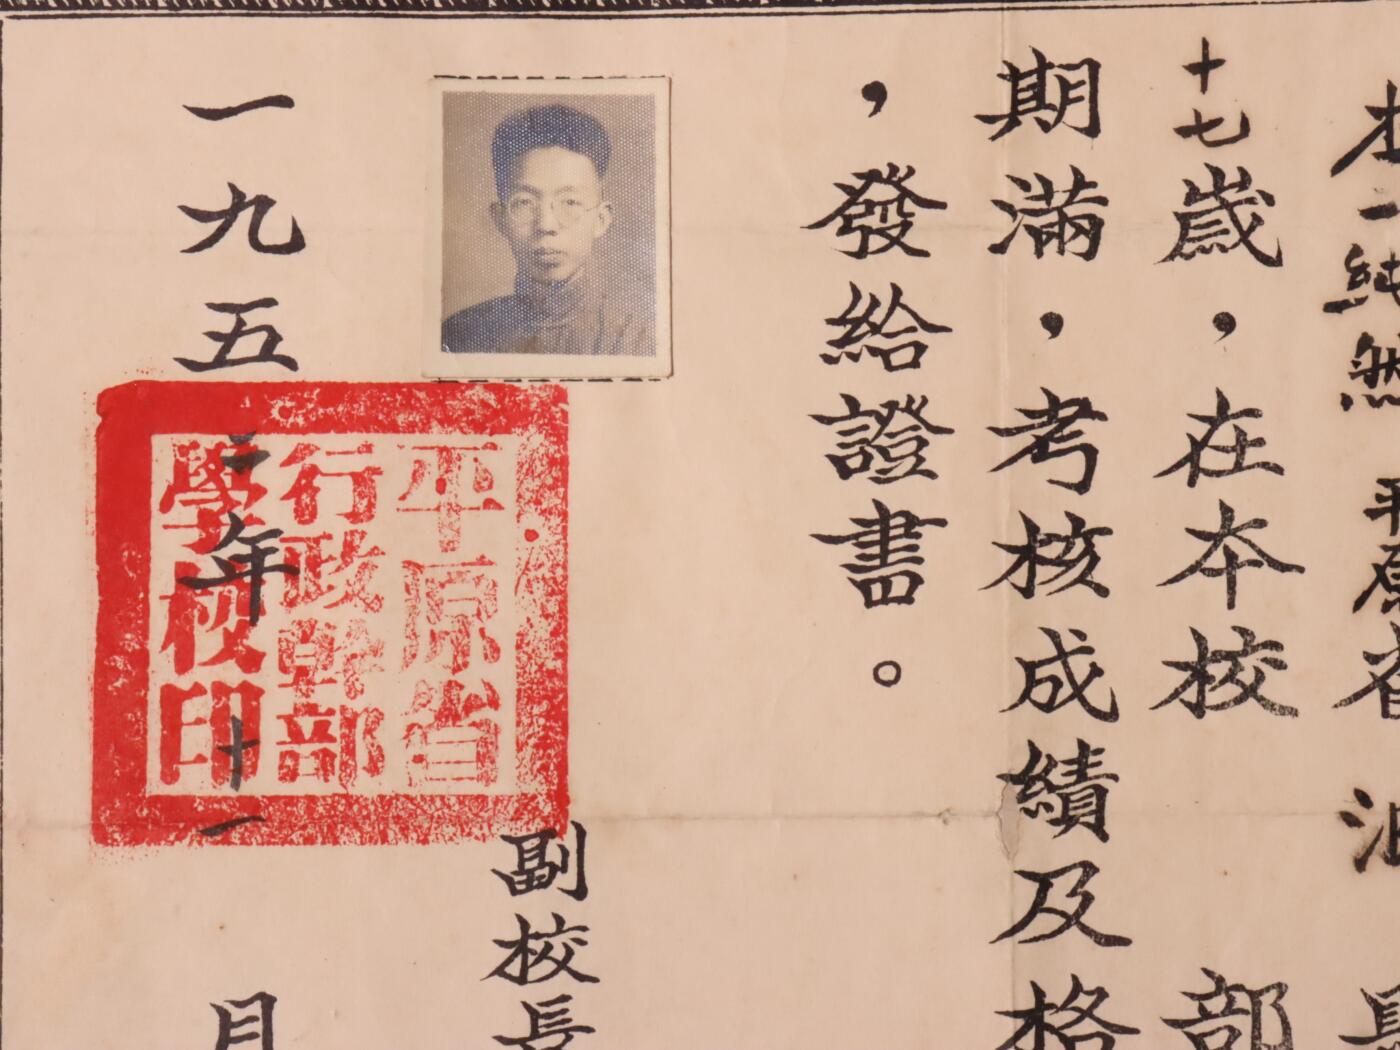 純然 平原省
十七歲，在本校 部
期滿，考核成績及格
，發給證書。
副校長
平原省
行政幹部
學校印
一九五二年十一月